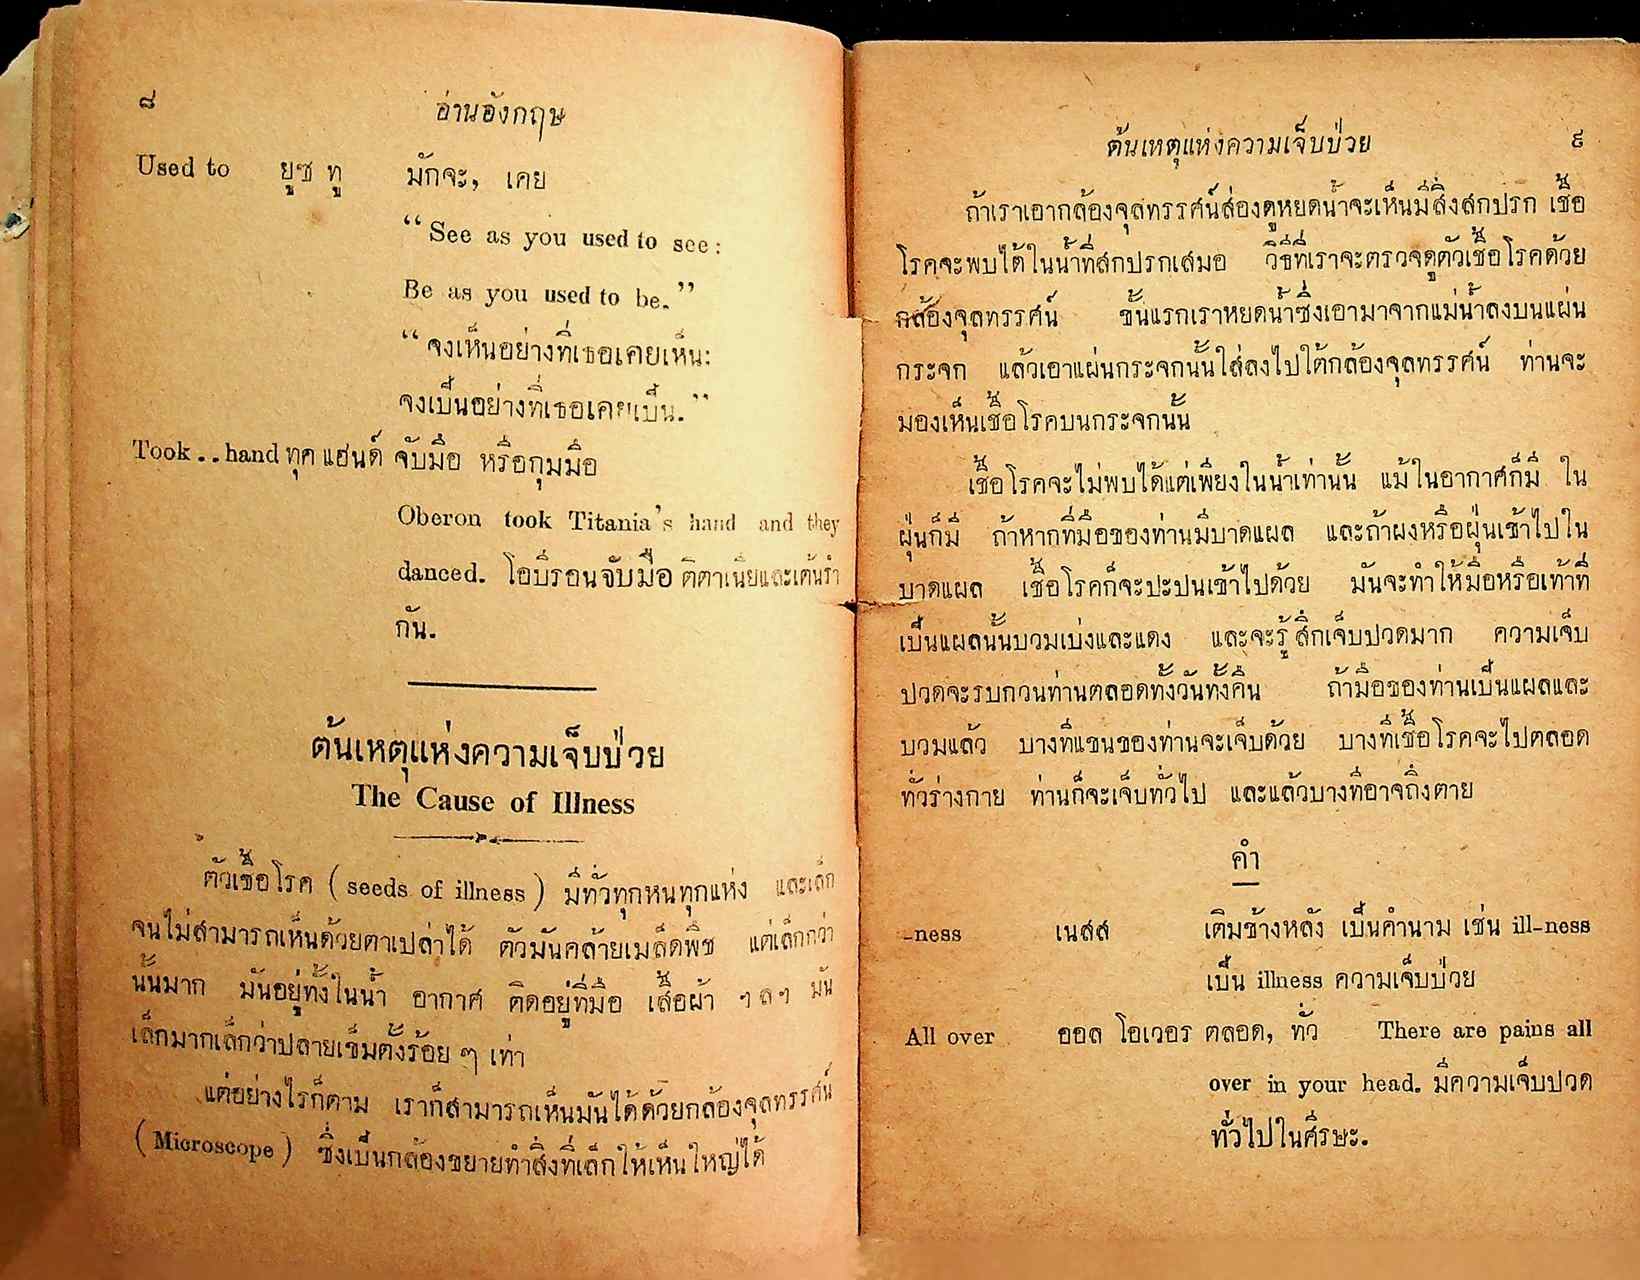 ๘
อ่านอังกฤษ
Used to ยูซ ทู มักจะ, เคย
“See as you used to see:
Be as you used to be.”
“จงเห็นอย่างที่เธอเคยเห็น:
จงเป็นอย่างที่เธอเคยเป็น.”
Took..hand ทุค แฮนด์ จับมือ หรือกุมมือ
Oberon took Titania's hand and they
danced. โอบิรอนจับมือ ติตาเนียและเต้นรำ
กัน.
ต้นเหตุแห่งความเจ็บป่วย
The Cause of Illness
ตัวเชื้อโรค (seeds of illness) มีทั่วทุกหนทุกแห่ง และเล็ก
จนไม่สามารถเห็นด้วยตาเปล่าได้ ตัวมันคล้ายเมล็ดพืช แต่เล็กกว่า
นั้นมาก มันอยู่ทั้งในน้ำ อากาศ ติดอยู่ที่มือ เสื้อผ้า ฯลฯ มัน
เล็กมากเล็กว่าปลายเข็มตั้งร้อย ๆ เท่า
แต่อย่างไรก็ตาม เราก็สามารถเห็นมันได้ด้วยกล้องจุลทรรศน์
(Microscope) ซึ่งเป็นกล้องขยายทำสิ่งที่เล็กให้เห็นใหญ่ได้
ต้นเหตุแห่งความเจ็บป่วย ๙
ถ้าเราเอากล้องจุลทรรศน์ส่องดูหยดน้ำจะเห็นมีสิ่งสกปรก เชื้อ
โรคจะพบได้ในน้ำที่สกปรกเสมอ วิธีที่เราจะตรวจดูตัวเชื้อโรคด้วย
กล้องจุลทรรศน์ ขั้นแรกเราหยดน้ำซึ่งเอามาจากแม่น้ำลงบนแผ่น
กระจก แล้วเอาแผ่นกระจกนั้นใส่ลงไปใต้กล้องจุลทรรศน์ ท่านจะ
มองเห็นเชื้อโรคบนกระจกนั้น
เชื้อโรคจะไม่พบได้แต่เพียงในน้ำเท่านั้น แม้ในอากาศก็มี ใน
ฝุ่นก็มี ถ้าหากที่มือของท่านมีบาดแผล และถ้าผงหรือฝุ่นเข้าไปใน
บาดแผล เชื้อโรคก็จะปะปนเข้าไปด้วย มันจะทำให้มือหรือเท้าที่
เป็นแผลนั้นบวมเบ่งและแดง และจะรู้สึกเจ็บปวดมาก ความเจ็บ
ปวดจะรบกวนท่านตลอดทั้งวันทั้งคืน ถ้ามือของท่านเป็นแผลและ
บวมแล้ว บางทีแขนของท่านจะเจ็บด้วย บางทีเชื้อโรคจะไปตลอด
ทั่วร่างกาย ท่านก็จะเจ็บทั่วไป และแล้วบางทีอาจถึงตาย
คำ
-ness เนสส เติมข้างหลัง เป็นคำนาม เช่น ill-ness
เป็น illness ความเจ็บป่วย
All over ออล โอเวอร ตลอด, ทั่ว There are pains all
over in your head. มีความเจ็บปวด
ทั่วไปในศีรษะ.